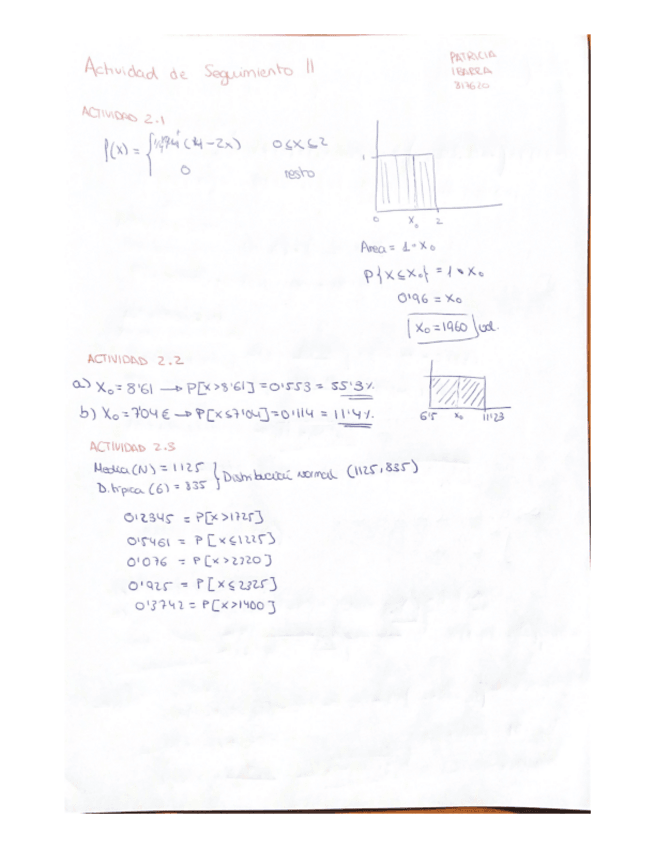 Actividad de Seguimiento II
PATRICIA
IBARRA
817620
ACTIVIDAD 2.1
f(x) = { (4-2x) 0≤x≤2
0 resto
1
0 x₀ 2
Area = 1-x₀
P{x≤x₀} = 1·x₀
0'96 = x₀
x₀ = 1960 ud.
ACTIVIDAD 2.2
a) x₀ = 8'61 → P[x>8'61] = 0'553 = 55'3%
b) x₀ = 7'04€ → P[x≤7'04] = 0'114 = 11'4%
6'5 x₀ 11'23
ACTIVIDAD 2.3
Media (N) = 1125
D. típica (6) = 835 } Distribución normal (1125, 835)
0'2345 = P[x>1725]
0'5461 = P[x≤1225]
0'076 = P[x>2320]
0'925 = P[x≤2325]
0'3742 = P[x>1400]